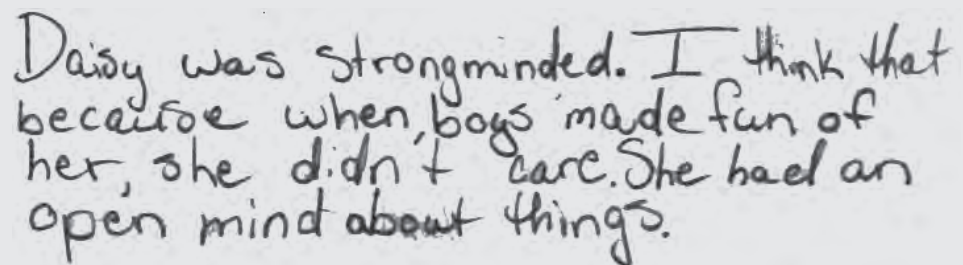 Daisy was strongminded. I think that
because when, boys made fun of
her, she didn't care. She had an
open mind about things.